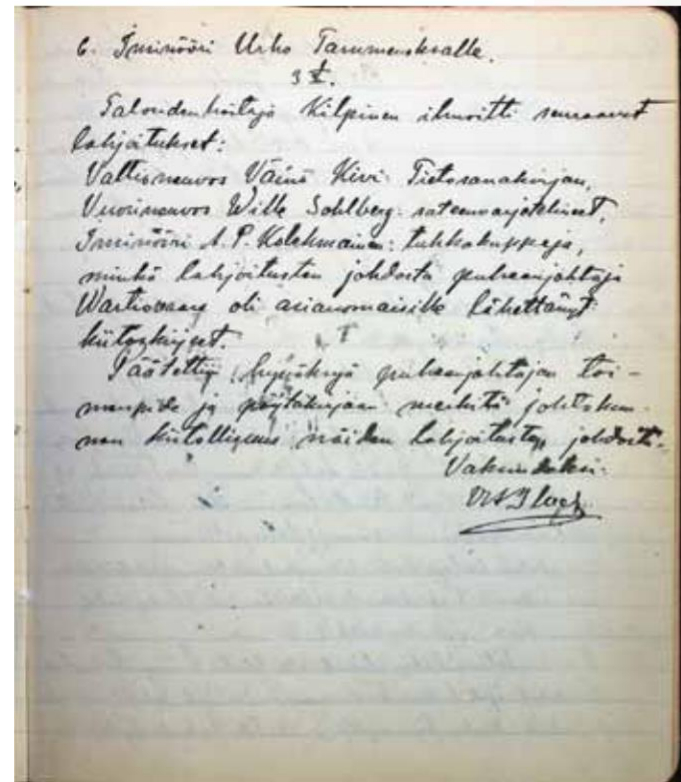 6. Insinööri Urho Tammenoksalle.
3 §.
Taloudenhoitaja Kilpinen ilmoitti seuraavat
lahjoitukset:
Valtioneuvos Väinö Kivi: Tietosanakirjan,
Vuorineuvos Wille Sohlberg: sateenvarjotelineet,
Insinööri A. P. Kolehmainen: tuhkakuppeja,
minkä lahjoitusten johdosta puheenjohtaja
Wartiovaara oli asianomaisille lähettänyt
kiitoskirjeet.
Päätettiin hyväksyä puheenjohtajan toi-
menpide ja pöytäkirjaan merkitä johtokun-
nan kiitollisuus näiden lahjoitusten johdosta.
Vakuudeksi: